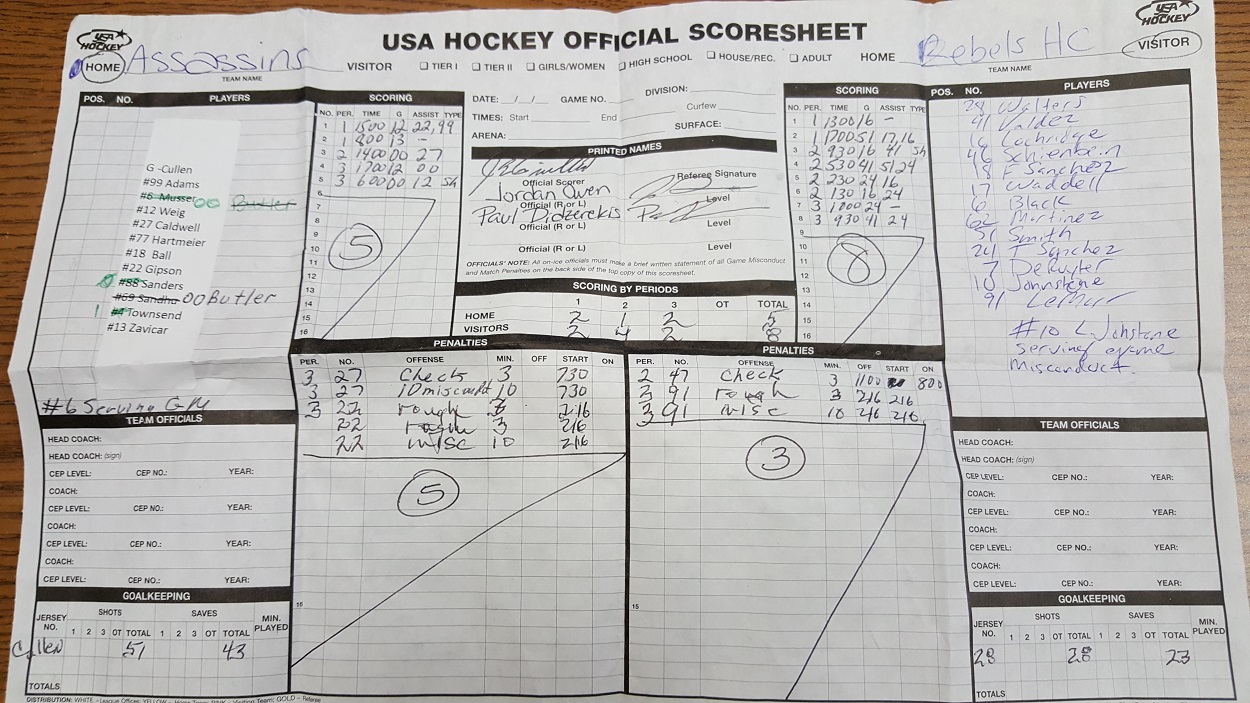 USA HOCKEY
USA HOCKEY OFFICIAL SCORESHEET
USA HOCKEY
HOME Assassins
TEAM NAME
VISITOR ☐ TIER I ☐ TIER II ☐ GIRLS/WOMEN ☐ HIGH SCHOOL ☐ HOUSE/REC. ☐ ADULT HOME
Rebels HC VISITOR
TEAM NAME
POS. NO. PLAYERS
G -Cullen
#99 Adams
#6 Musser 00 Butler
#12 Weig
#27 Caldwell
#77 Hartmeier
#18 Ball
#22 Gipson
#88 Sanders
#69 Sandhu 00 Butler
1 #4 Townsend
#13 Zavicar
#6 Serving GM
SCORING
NO. PER. TIME G ASSIST TYPE
1 1 1500 12 22,99
2 1 800 13 -
3 2 1400 00 27
4 3 1700 12 00
5 3 600 00 12 Sh
6
7
8
9
10
11
12
13
14
15
16
5
DATE: __/__/__ GAME NO. DIVISION:
TIMES: Start End Curfew
ARENA: SURFACE:
PRINTED NAMES
Official Scorer Referee Signature
Jordan Owen
Official (R or L) Level
Paul Didzerekis
Official (R or L) Level
Official (R or L) Level
OFFICIALS' NOTE: All on-ice officials must make a brief written statement of all Game Misconduct
and Match Penalties on the back side of the top copy of this scoresheet.
SCORING BY PERIODS
1 2 3 OT TOTAL
HOME 2 1 2 5
VISITORS 2 4 2 8
SCORING
NO. PER. TIME G ASSIST TYPE
1 1 1300 16 -
2 1 1700 51 17,16
3 2 930 16 71 Sh
4 2 530 41 51,24
5 2 230 24 16
6 2 130 16 24
7 3 1800 24 -
8 3 930 41 24
9
10
11
12
13
14
15
16
8
POS. NO. PLAYERS
28 Walters
41 Valdez
16 Lochridge
46 Schienbein
18 F Sanchez
17 Waddell
6 Black
62 Martinez
51 Smith
24 T Sanchez
7 DeRuyter
10 Johnstone
91 LeMur
#10 L Johstone
serving game
misconduct.
PENALTIES
PER. NO. OFFENSE MIN. OFF START ON
3 27 Check 3 730
3 27 10 misconduct 10 730
3 22 rough 3 216
22 rough 3 216
22 misc 10 216
5
15
PENALTIES
PER. NO. OFFENSE MIN. OFF START ON
2 47 Check 3 1100 800
3 91 rough 3 216 216
3 91 misc 10 216 216
3
15
TEAM OFFICIALS
HEAD COACH:
HEAD COACH: (sign)
CEP LEVEL: CEP NO.: YEAR:
COACH:
CEP LEVEL: CEP NO.: YEAR:
COACH:
CEP LEVEL: CEP NO.: YEAR:
COACH:
CEP LEVEL: CEP NO.: YEAR:
GOALKEEPING
JERSEY NO. SHOTS SAVES MIN. PLAYED
1 2 3 OT TOTAL 1 2 3 OT TOTAL
Cullen 51 43
TOTALS
TEAM OFFICIALS
HEAD COACH:
HEAD COACH: (sign)
CEP LEVEL: CEP NO.: YEAR:
COACH:
CEP LEVEL: CEP NO.: YEAR:
COACH:
CEP LEVEL: CEP NO.: YEAR:
COACH:
CEP LEVEL: CEP NO.: YEAR:
GOALKEEPING
JERSEY NO. SHOTS SAVES MIN. PLAYED
1 2 3 OT TOTAL 1 2 3 OT TOTAL
28 28 23
TOTALS